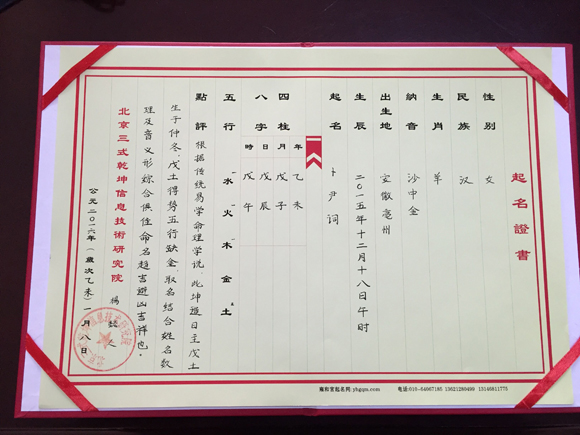 起名證書
性别 女
民族 汉
生肖 羊
納音 沙中金
出生地 安徽亳州
生辰 二〇一五年十二月十八日午时
起名 卜尹词
年 乙未
四柱 月 戊子
八字 日 戊辰
時 戊午
五行 水 火 木 金 土
點評 根据传统易学命理学说,此坤造日主戊土
生于仲冬,戊土得势五行缺金,取名结合姓名数
理及音义形综合俱佳命名趋吉避凶吉祥也。
北京三式乾坤信息技術研究院
公元二〇一六年(歲次乙未)一月八日
雍和宫起名网:yhgqm.com 电话:010-64067185 13621280499 13146811775